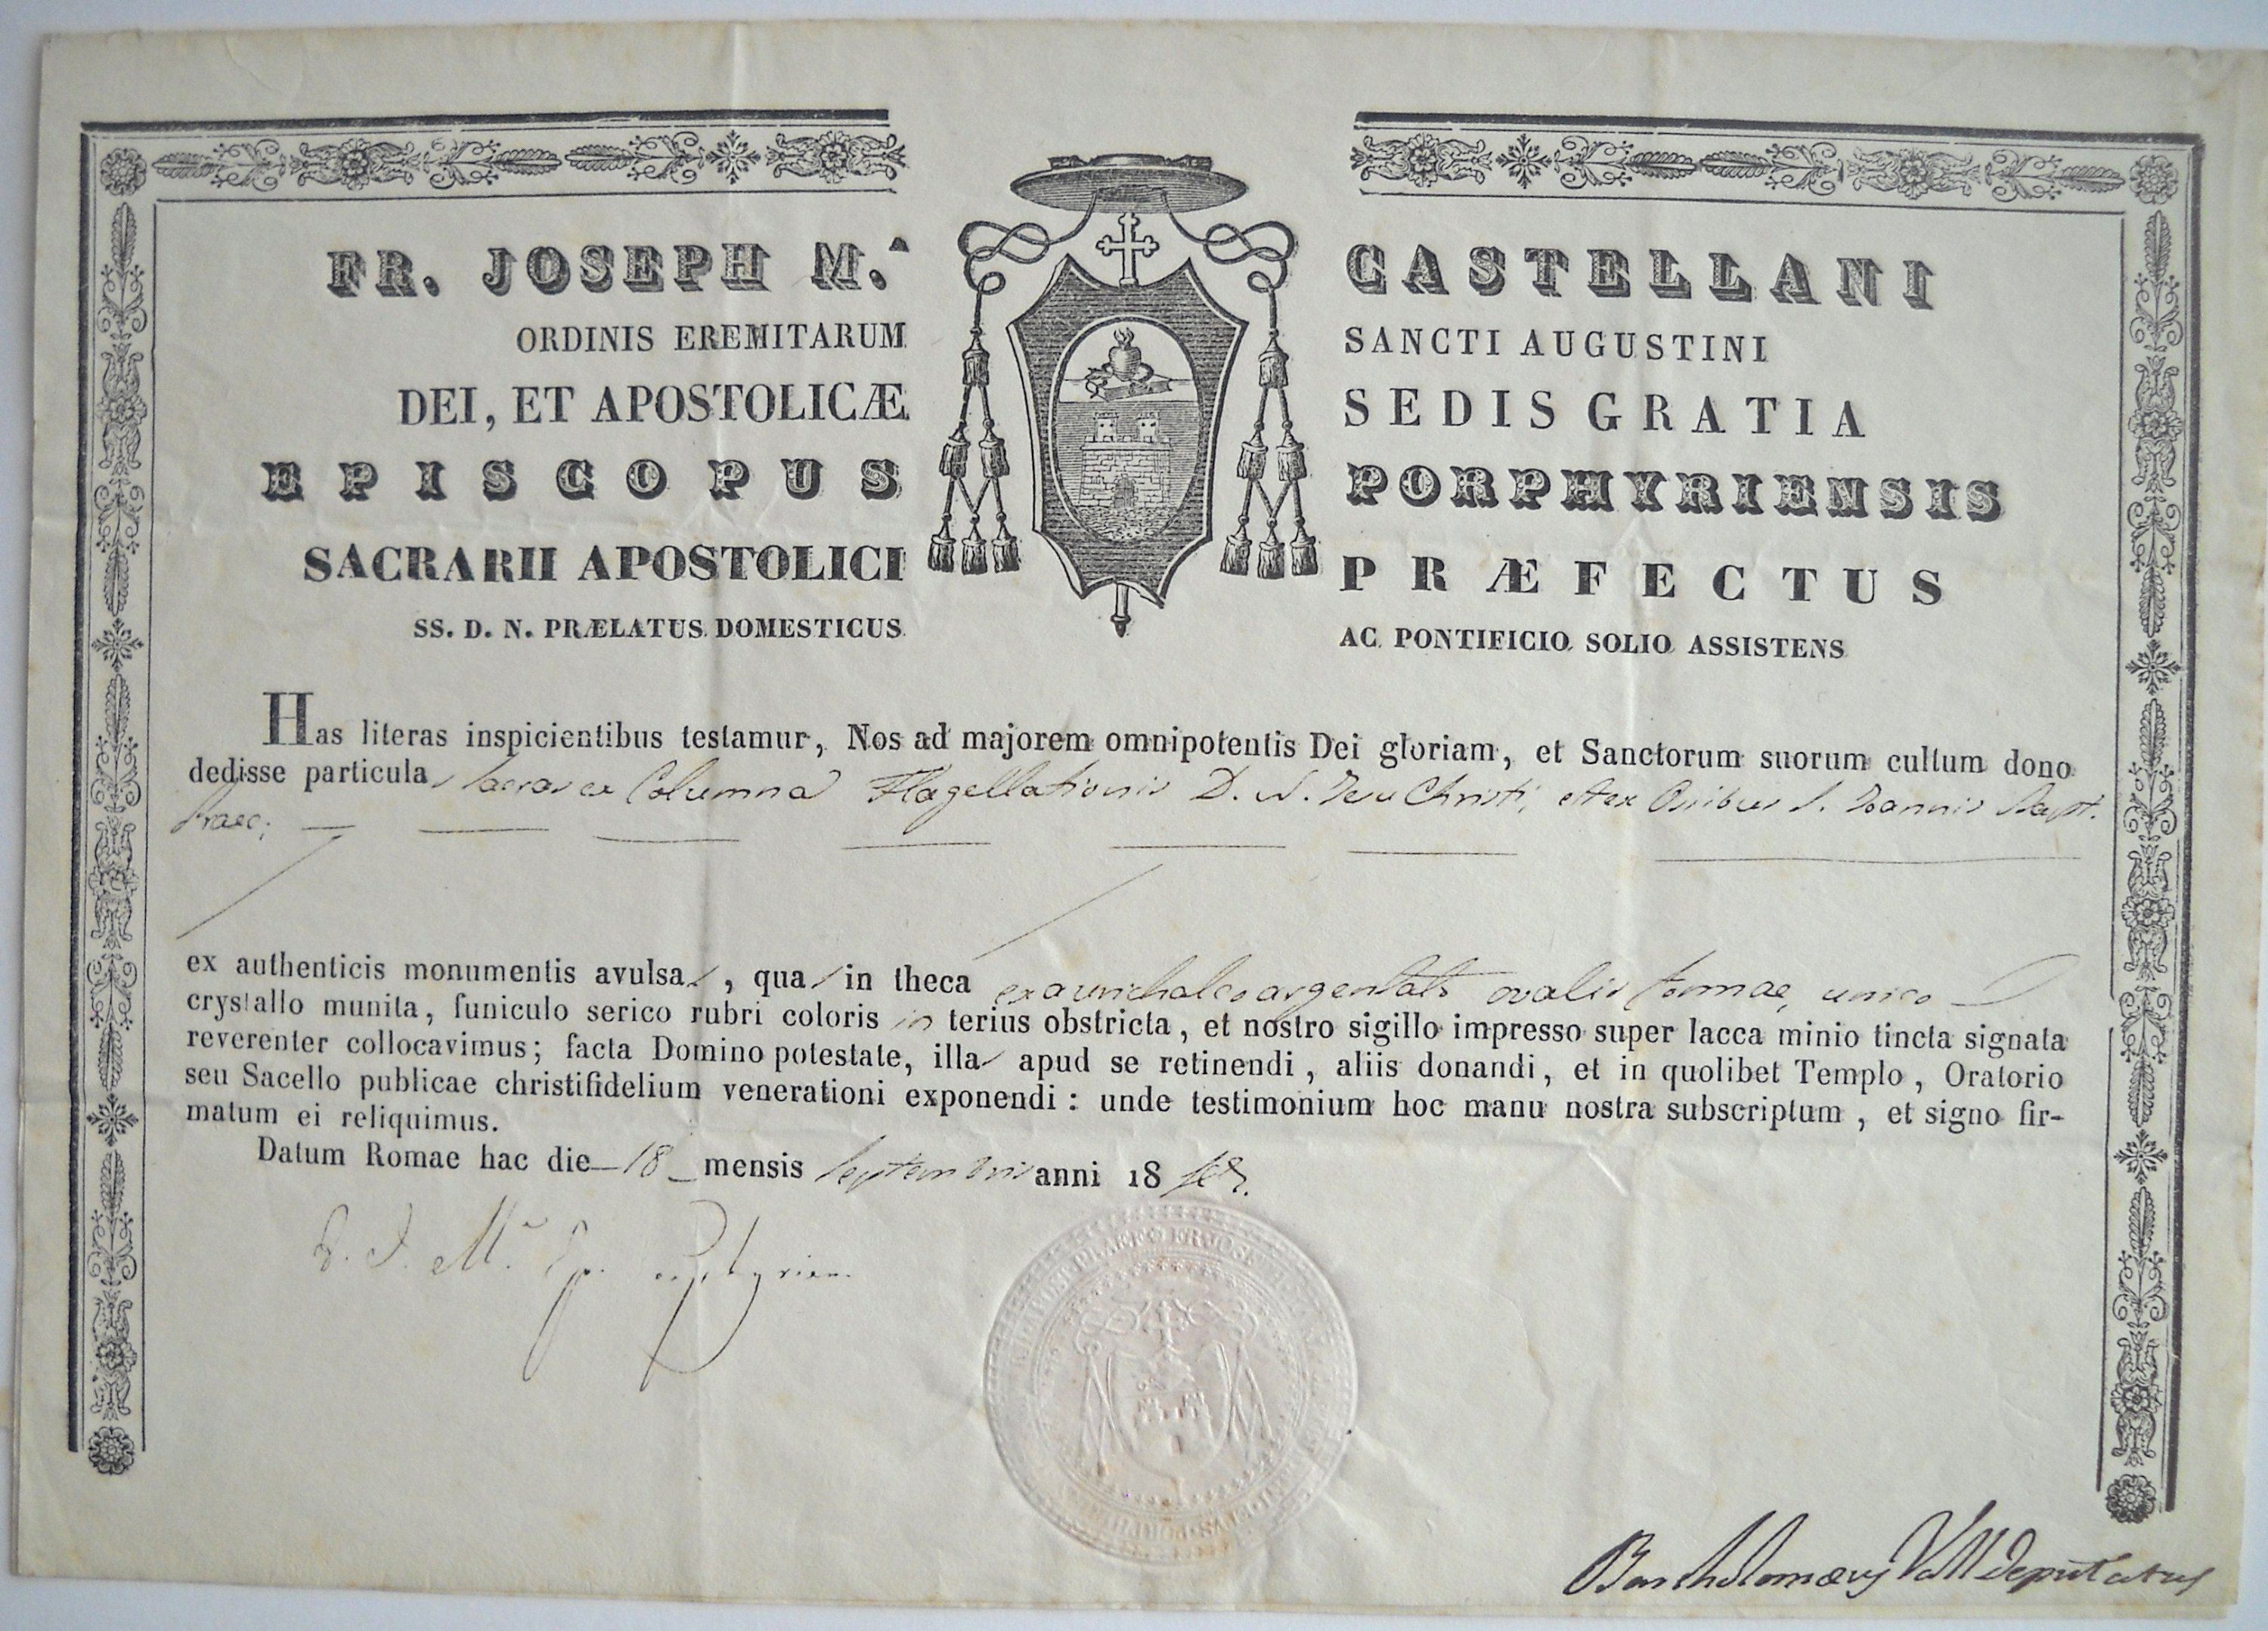 FR. JOSEPH M.A CASTELLANI
ORDINIS EREMITARUM SANCTI AUGUSTINI
DEI, ET APOSTOLICÆ SEDIS GRATIA
EPISCOPUS PORPHYRIENSIS
SACRARII APOSTOLICI PRÆFECTUS
SS. D. N. PRÆLATUS DOMESTICUS AC PONTIFICIO SOLIO ASSISTENS
Has literas inspicientibus testamur, Nos ad majorem omnipotentis Dei gloriam, et Sanctorum suorum cultum dono
dedisse particulas sacras ex Columna Flagellationis D. N. Jesu Christi, et ex Ossibus S. Joannis Bapt.
Praec;
ex authenticis monumentis avulsas, quas in theca ex aurichalco argentato ovalis formae, unico
crystallo munita, funiculo serico rubri coloris in terius obstricta, et nostro sigillo impresso super lacca minio tincta signata
reverenter collocavimus; facta Domino potestate, illas apud se retinendi, aliis donandi, et in quolibet Templo, Oratorio
seu Sacello publicae christifidelium venerationi exponendi: unde testimonium hoc manu nostra subscriptum, et signo fir-
matum ei reliquimus.
Datum Romae hac die 18 mensis Septembris anni 18
F. J. M.a Ep. Porphyrien.
Bartholomæus Deputatus